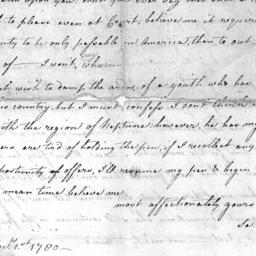 upon you. 
to please even at Court, believe me it requires
to be only passable in America, than to out
of — I won't
wish to damp the ardor of a youth who has
country, but I must confess I dont think
with the region of Neptune however, he has my
are tired of holding the pen, if I recollect any
opportunity offers, I'll resume my pen & begin
mean time believe me
most affectionately yours
1st 1780 —